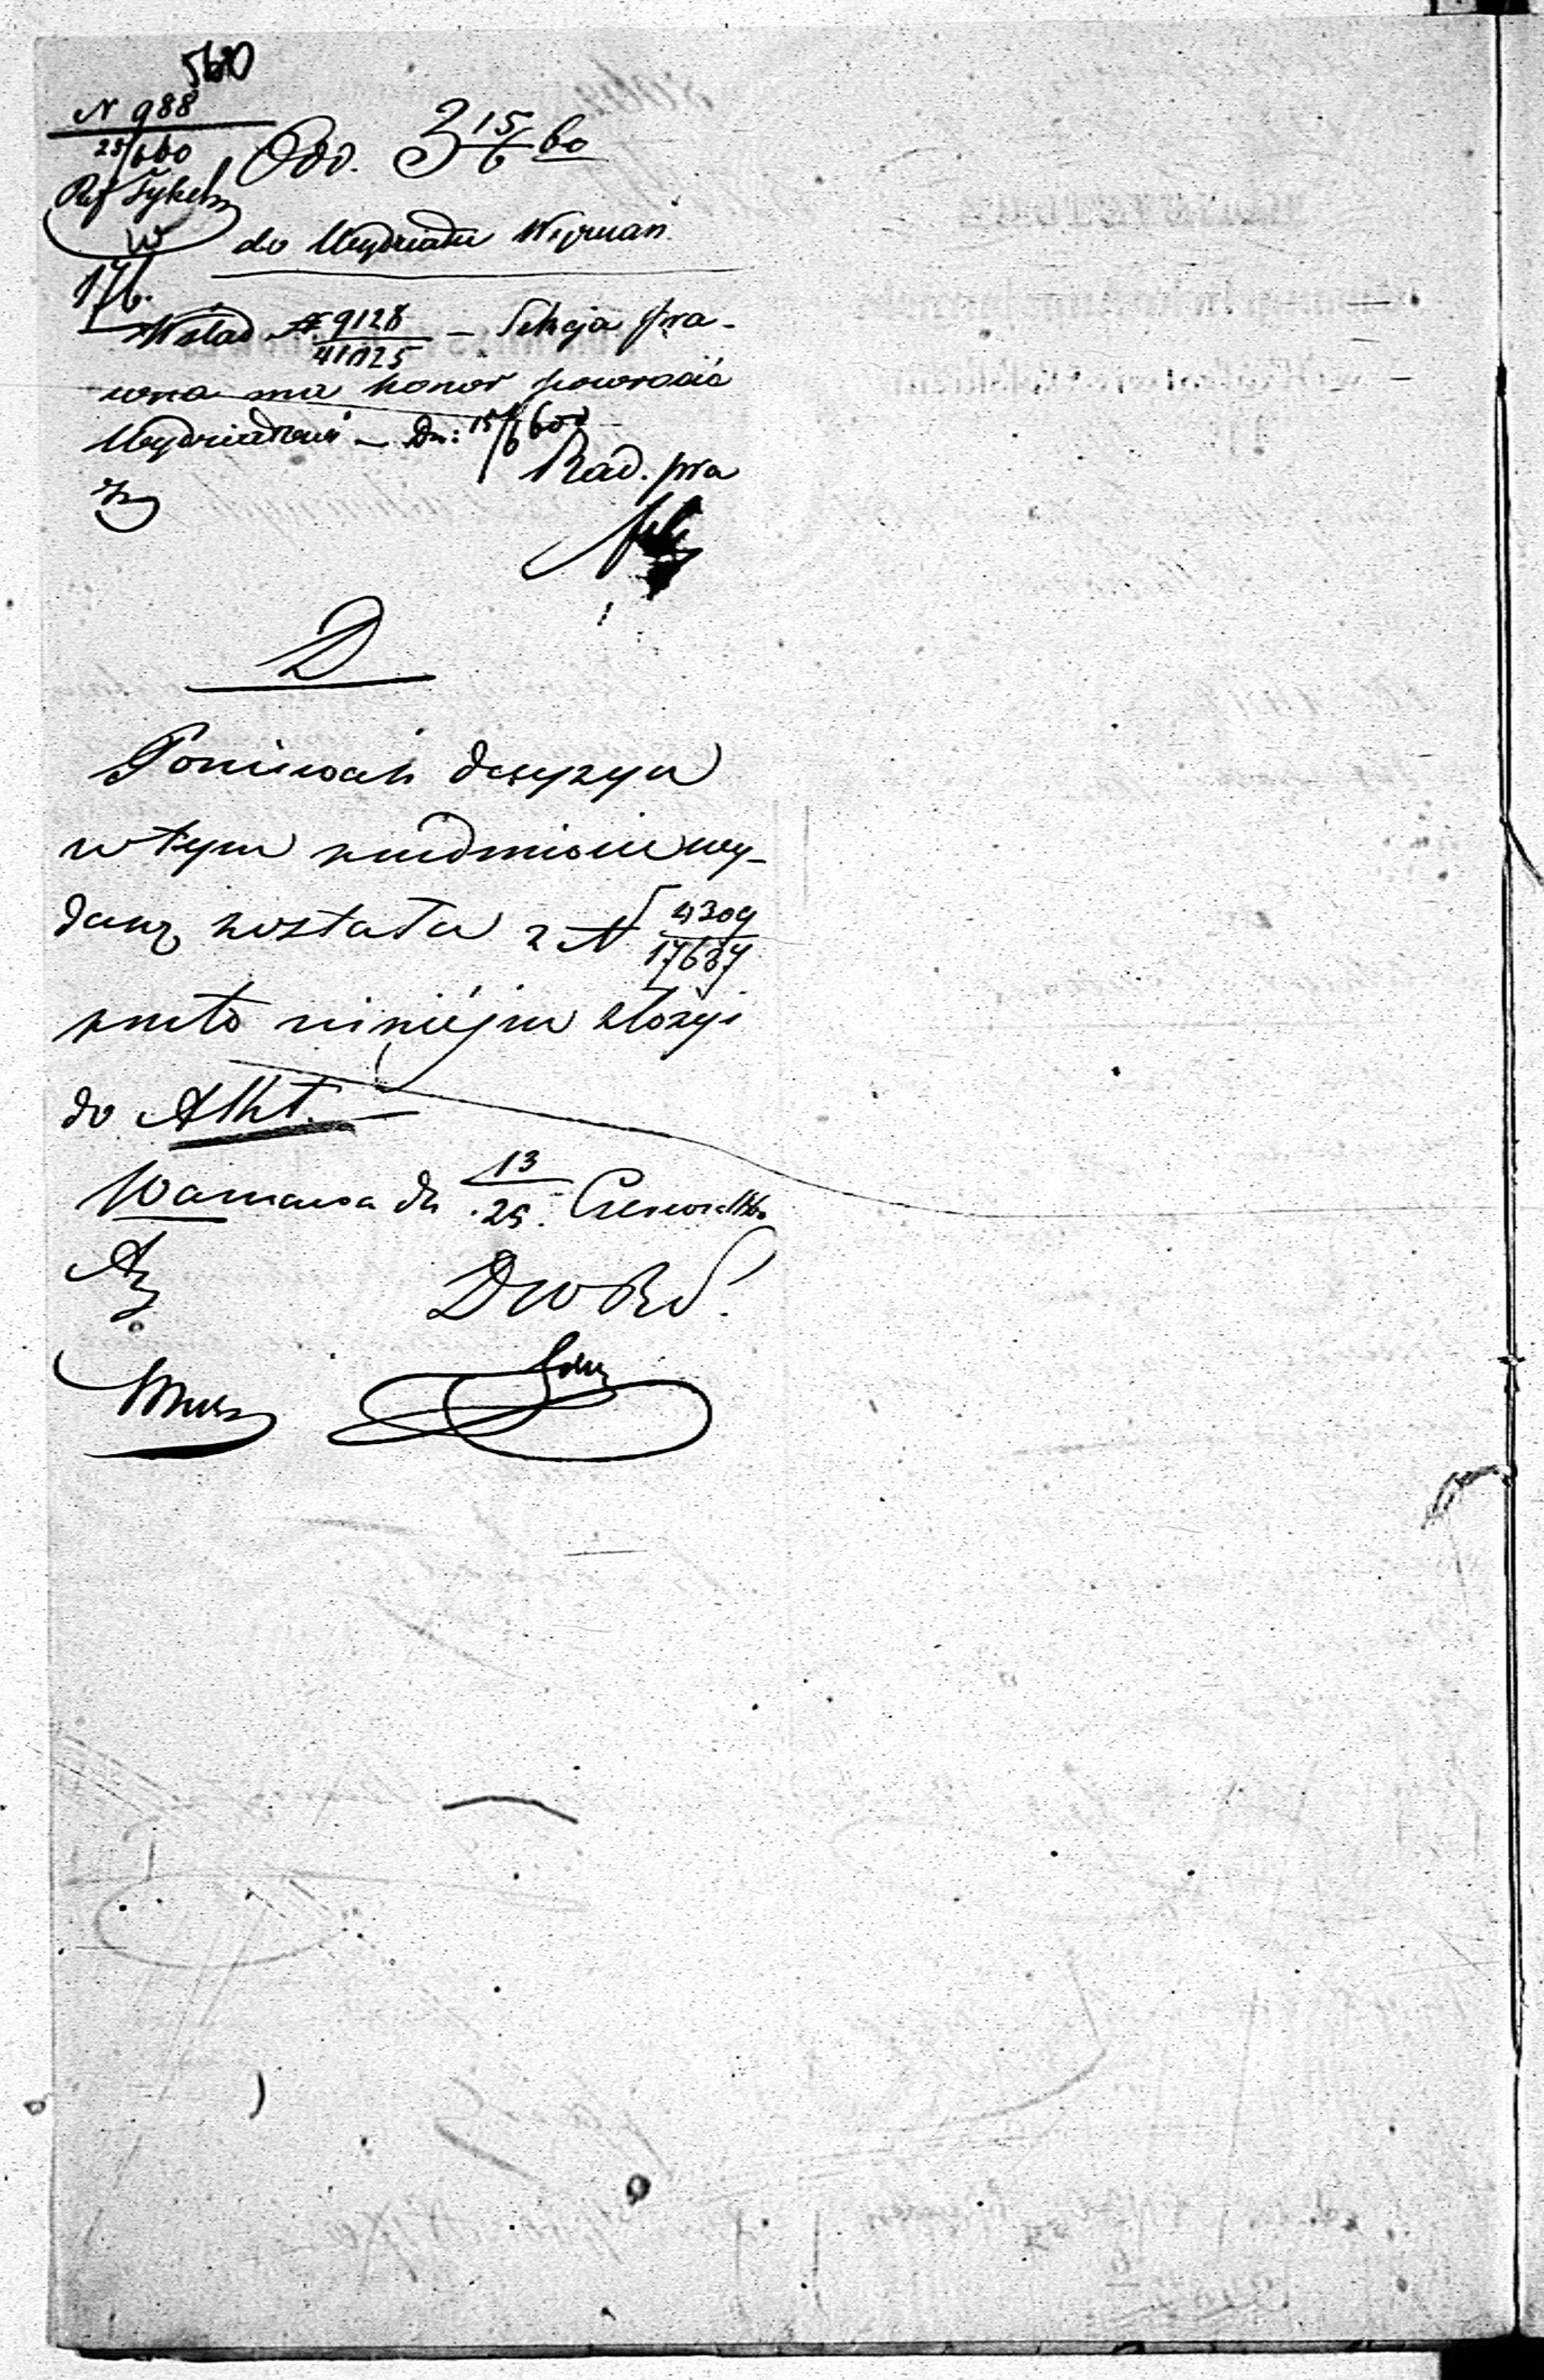 5610
N 988
25/6 60
Ref
W
17/6.
Odd. 3 15/6 60
do Wydziału Wyznań
Wślad N 9128/41125 – Sekcja pra-
wna ma honor powrócić
Wydziałowi – Dn: 15/6 60
Rad. pra
D
Poniewah decyzya
w tym przedmiocie wy-
daną została z N 4309/17637
przeto niniejsze złożyć
do Akt.
Warszawa dn 13/25 Czerwca 1860
DWRS.